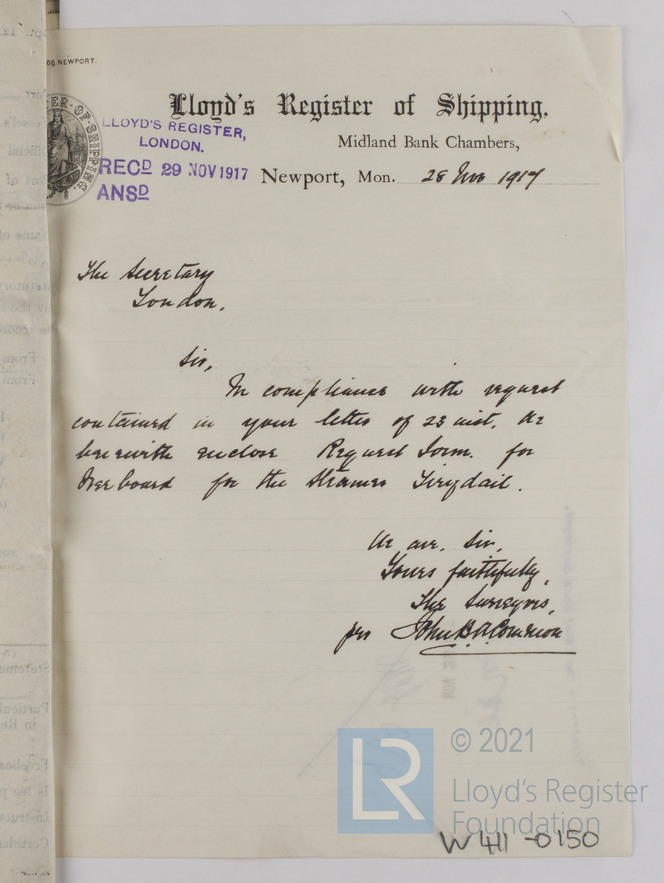 OG NEWPORT.
Lloyd's Register of Shipping,
Midland Bank Chambers,
Newport, Mon. 28 Nov 1917
LLOYD'S REGISTER,
LONDON.
RECD 29 NOV 1917
ANSD
The Secretary
London.
Sir,
In compliance with request
contained in your letter of 23 inst. We
herewith enclose Request Form. for
Freeboard for the Steamer Tirydail.
We are. Sir,
Yours faithfully,
The Surveyors,
per John B.
© 2021
LR
Lloyd's Register
Foundation
W411-0150